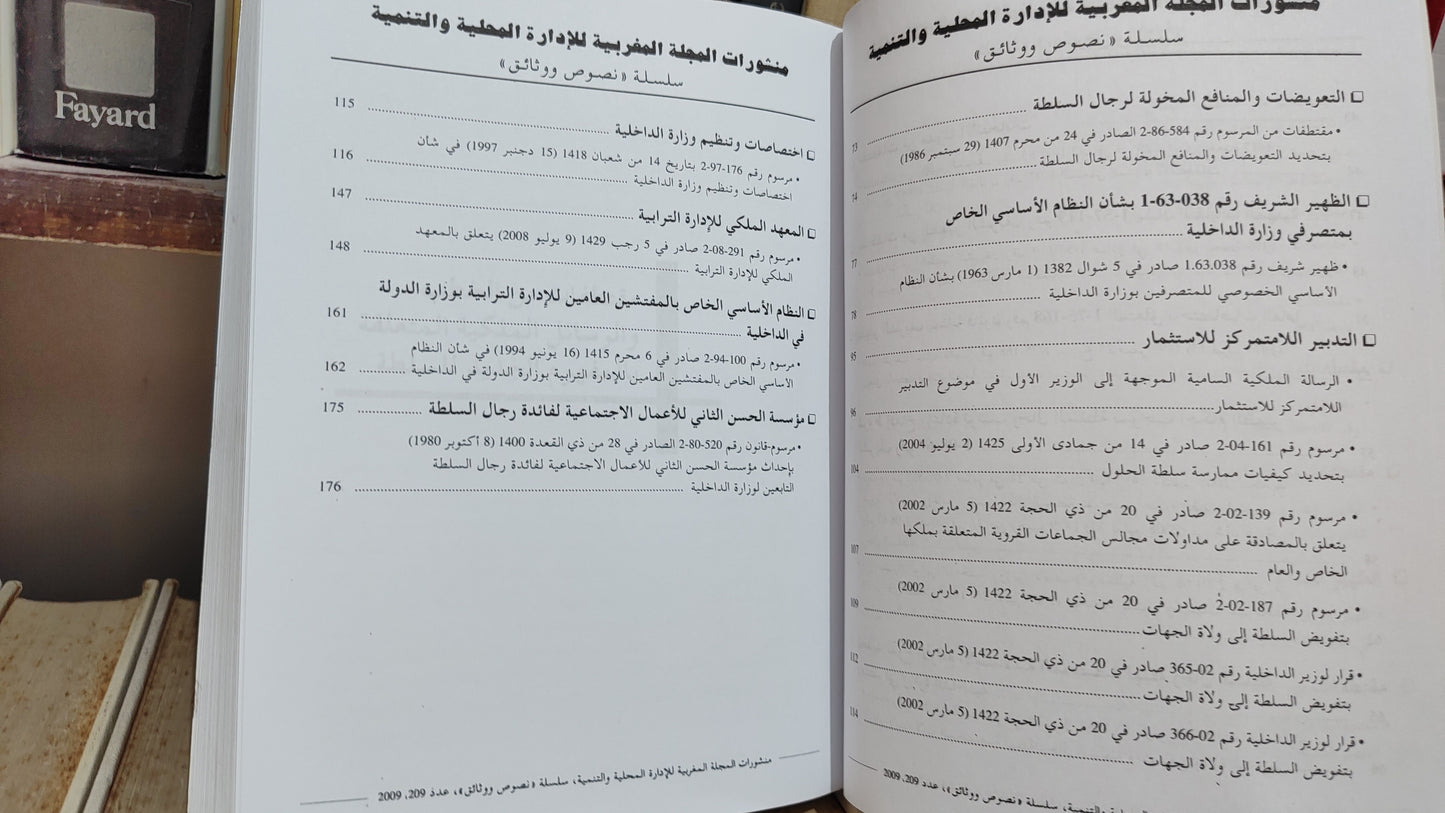 منشورات المجلة المغربية للإدارة المحلية والتنمية
سلسلة «نصوص ووثائق»
❑ التعويضات والمنافع المخولة لرجال السلطة ........ 73
• مقتطفات من المرسوم رقم 584-86-2 الصادر في 24 من محرم 1407 (29 سبتمبر 1986)
بتحديد التعويضات والمنافع المخولة لرجال السلطة ........ 74
❑ الظهير الشريف رقم 038-63-1 بشأن النظام الأساسي الخاص
بمتصرفي وزارة الداخلية ........ 77
• ظهير شريف رقم 1.63.038 صادر في 5 شوال 1382 (1 مارس 1963) بشأن النظام
الأساسي الخصوصي للمتصرفين بوزارة الداخلية ........ 78
❑ التدبير اللامتمركز للاستثمار ........ 95
• الرسالة الملكية السامية الموجهة إلى الوزير الأول في موضوع التدبير
اللامتمركز للاستثمار ........ 96
• مرسوم رقم 161-04-2 صادر في 14 من جمادى الأولى 1425 (2 يوليو 2004)
بتحديد كيفيات ممارسة سلطة الحلول ........ 104
• مرسوم رقم 139-02-2 صادر في 20 من ذي الحجة 1422 (5 مارس 2002)
يتعلق بالمصادقة على مداولات مجالس الجماعات القروية المتعلقة بملكها
الخاص والعام ........ 107
• مرسوم رقم 187-02-2 صادر في 20 من ذي الحجة 1422 (5 مارس 2002)
بتفويض السلطة إلى ولاة الجهات ........ 109
• قرار لوزير الداخلية رقم 02-365 صادر في 20 من ذي الحجة 1422 (5 مارس 2002)
بتفويض السلطة إلى ولاة الجهات ........ 112
• قرار لوزير الداخلية رقم 02-366 صادر في 20 من ذي الحجة 1422 (5 مارس 2002)
بتفويض السلطة إلى ولاة الجهات ........ 114
المحلية والتنمية، سلسلة «نصوص ووثائق»، عدد 209، 2009
منشورات المجلة المغربية للإدارة المحلية والتنمية
سلسلة «نصوص ووثائق»
❑ اختصاصات وتنظيم وزارة الداخلية ........ 115
• مرسوم رقم 176-97-2 بتاريخ 14 من شعبان 1418 (15 دجنبر 1997) في شأن
اختصاصات وتنظيم وزارة الداخلية ........ 116
❑ المعهد الملكي للإدارة الترابية ........ 147
• مرسوم رقم 291-08-2 صادر في 5 رجب 1429 (9 يوليو 2008) يتعلق بالمعهد
الملكي للإدارة الترابية ........ 148
❑ النظام الأساسي الخاص بالمفتشين العامين للإدارة الترابية بوزارة الدولة
في الداخلية ........ 161
• مرسوم رقم 100-94-2 صادر في 6 محرم 1415 (16 يونيو 1994) في شأن النظام
الأساسي الخاص بالمفتشين العامين للإدارة الترابية بوزارة الدولة في الداخلية ........ 162
❑ مؤسسة الحسن الثاني للأعمال الاجتماعية لفائدة رجال السلطة ........ 175
• مرسوم-قانون رقم 520-80-2 الصادر في 28 من ذي القعدة 1400 (8 أكتوبر 1980)
بإحداث مؤسسة الحسن الثاني للأعمال الاجتماعية لفائدة رجال السلطة
التابعين لوزارة الداخلية ........ 176
منشورات المجلة المغربية للإدارة المحلية والتنمية، سلسلة «نصوص ووثائق»، عدد 209، 2009
Fayard